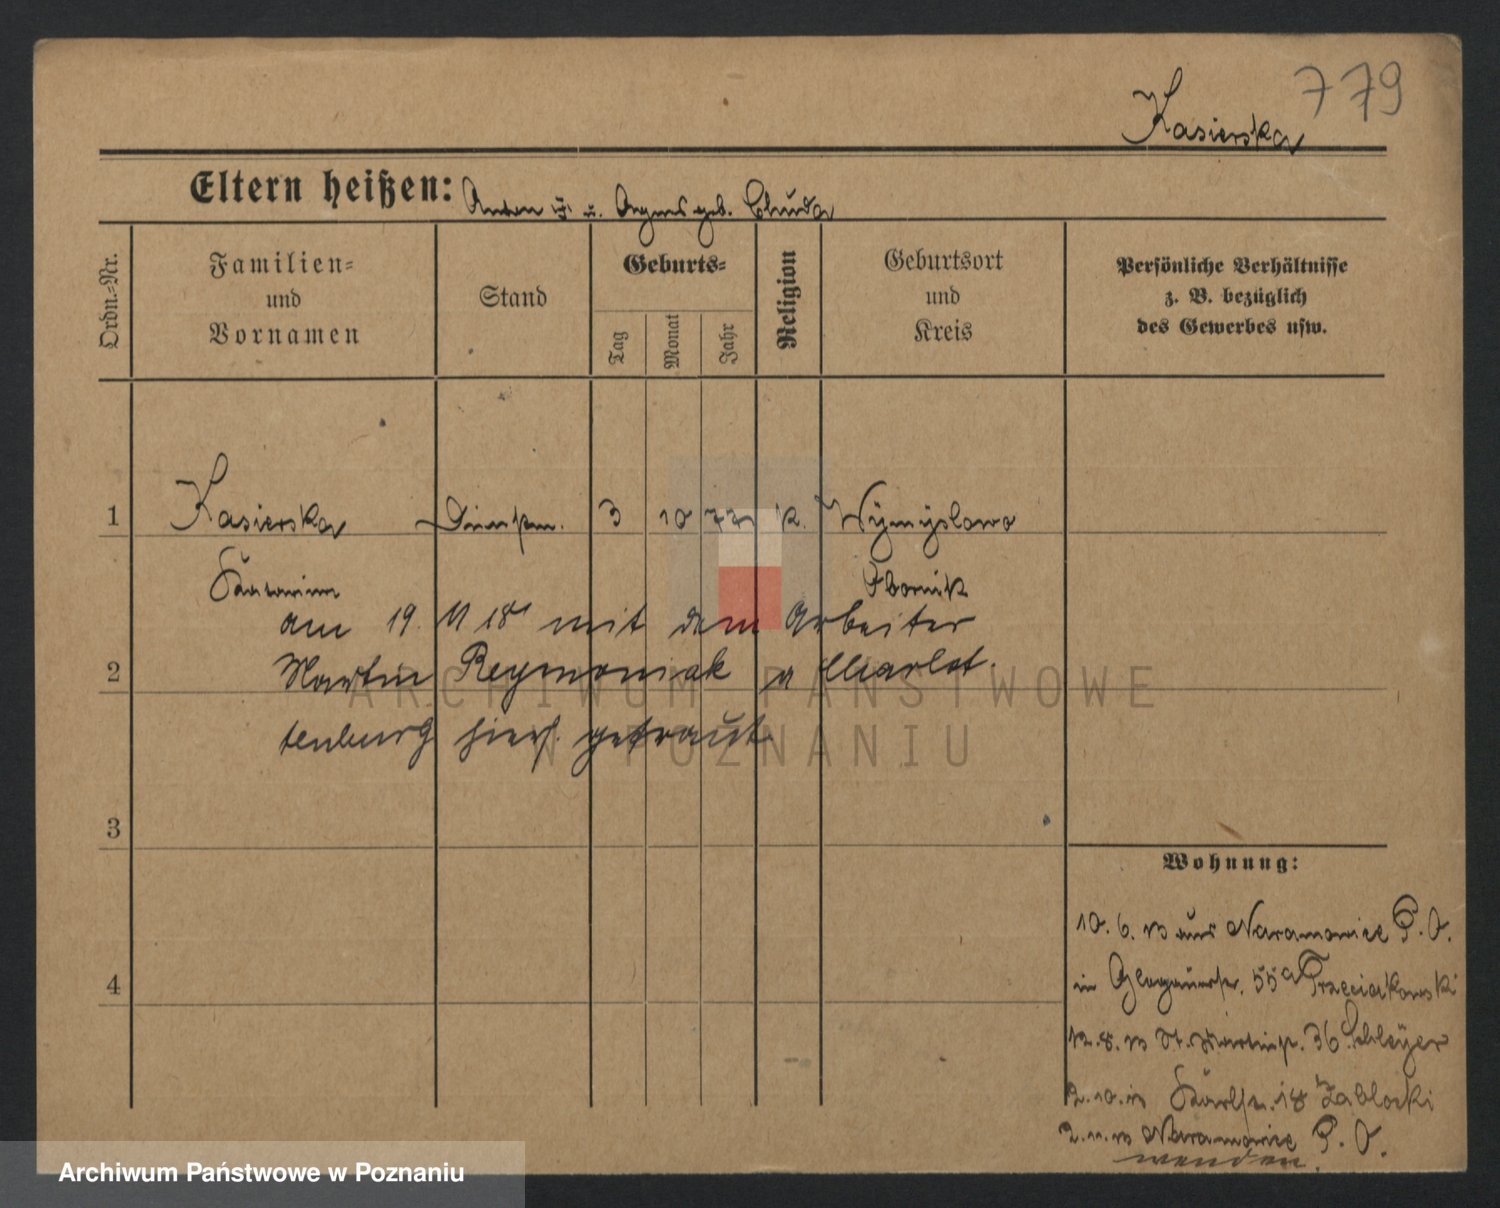 779
Kasierska
Eltern heißen: Anton u. Agnes geb. Chuda
Ordn.-Nr.
Familien-
und
Vornamen
Stand
Geburts-
Tag
Monat
Jahr
Religion
Geburtsort
und
Kreis
Persönliche Verhältnisse
z. B. bezüglich
des Gewerbes usw.
1 Kasierska 3 10 k. Wymyslowo
Obornik
am 19. 11 18 mit dem Arbeiter
2 Martin Reymoniak a Charlot-
tenburg hiers. getraut
3
4
Wohnung:
10. 6. 13 aus Naramowice P. O.
in Glogauerstr. 55a Trzeciakowski
12. 8. 13 St. Martinstr. 36 Schleyer
2. 10. 13 Karlstr. 18 Zablocki
2. 11. 13 Naramowice P. O.
wenden.
ARCHIWUM PAŃSTWOWE
W POZNANIU
Archiwum Państwowe w Poznaniu